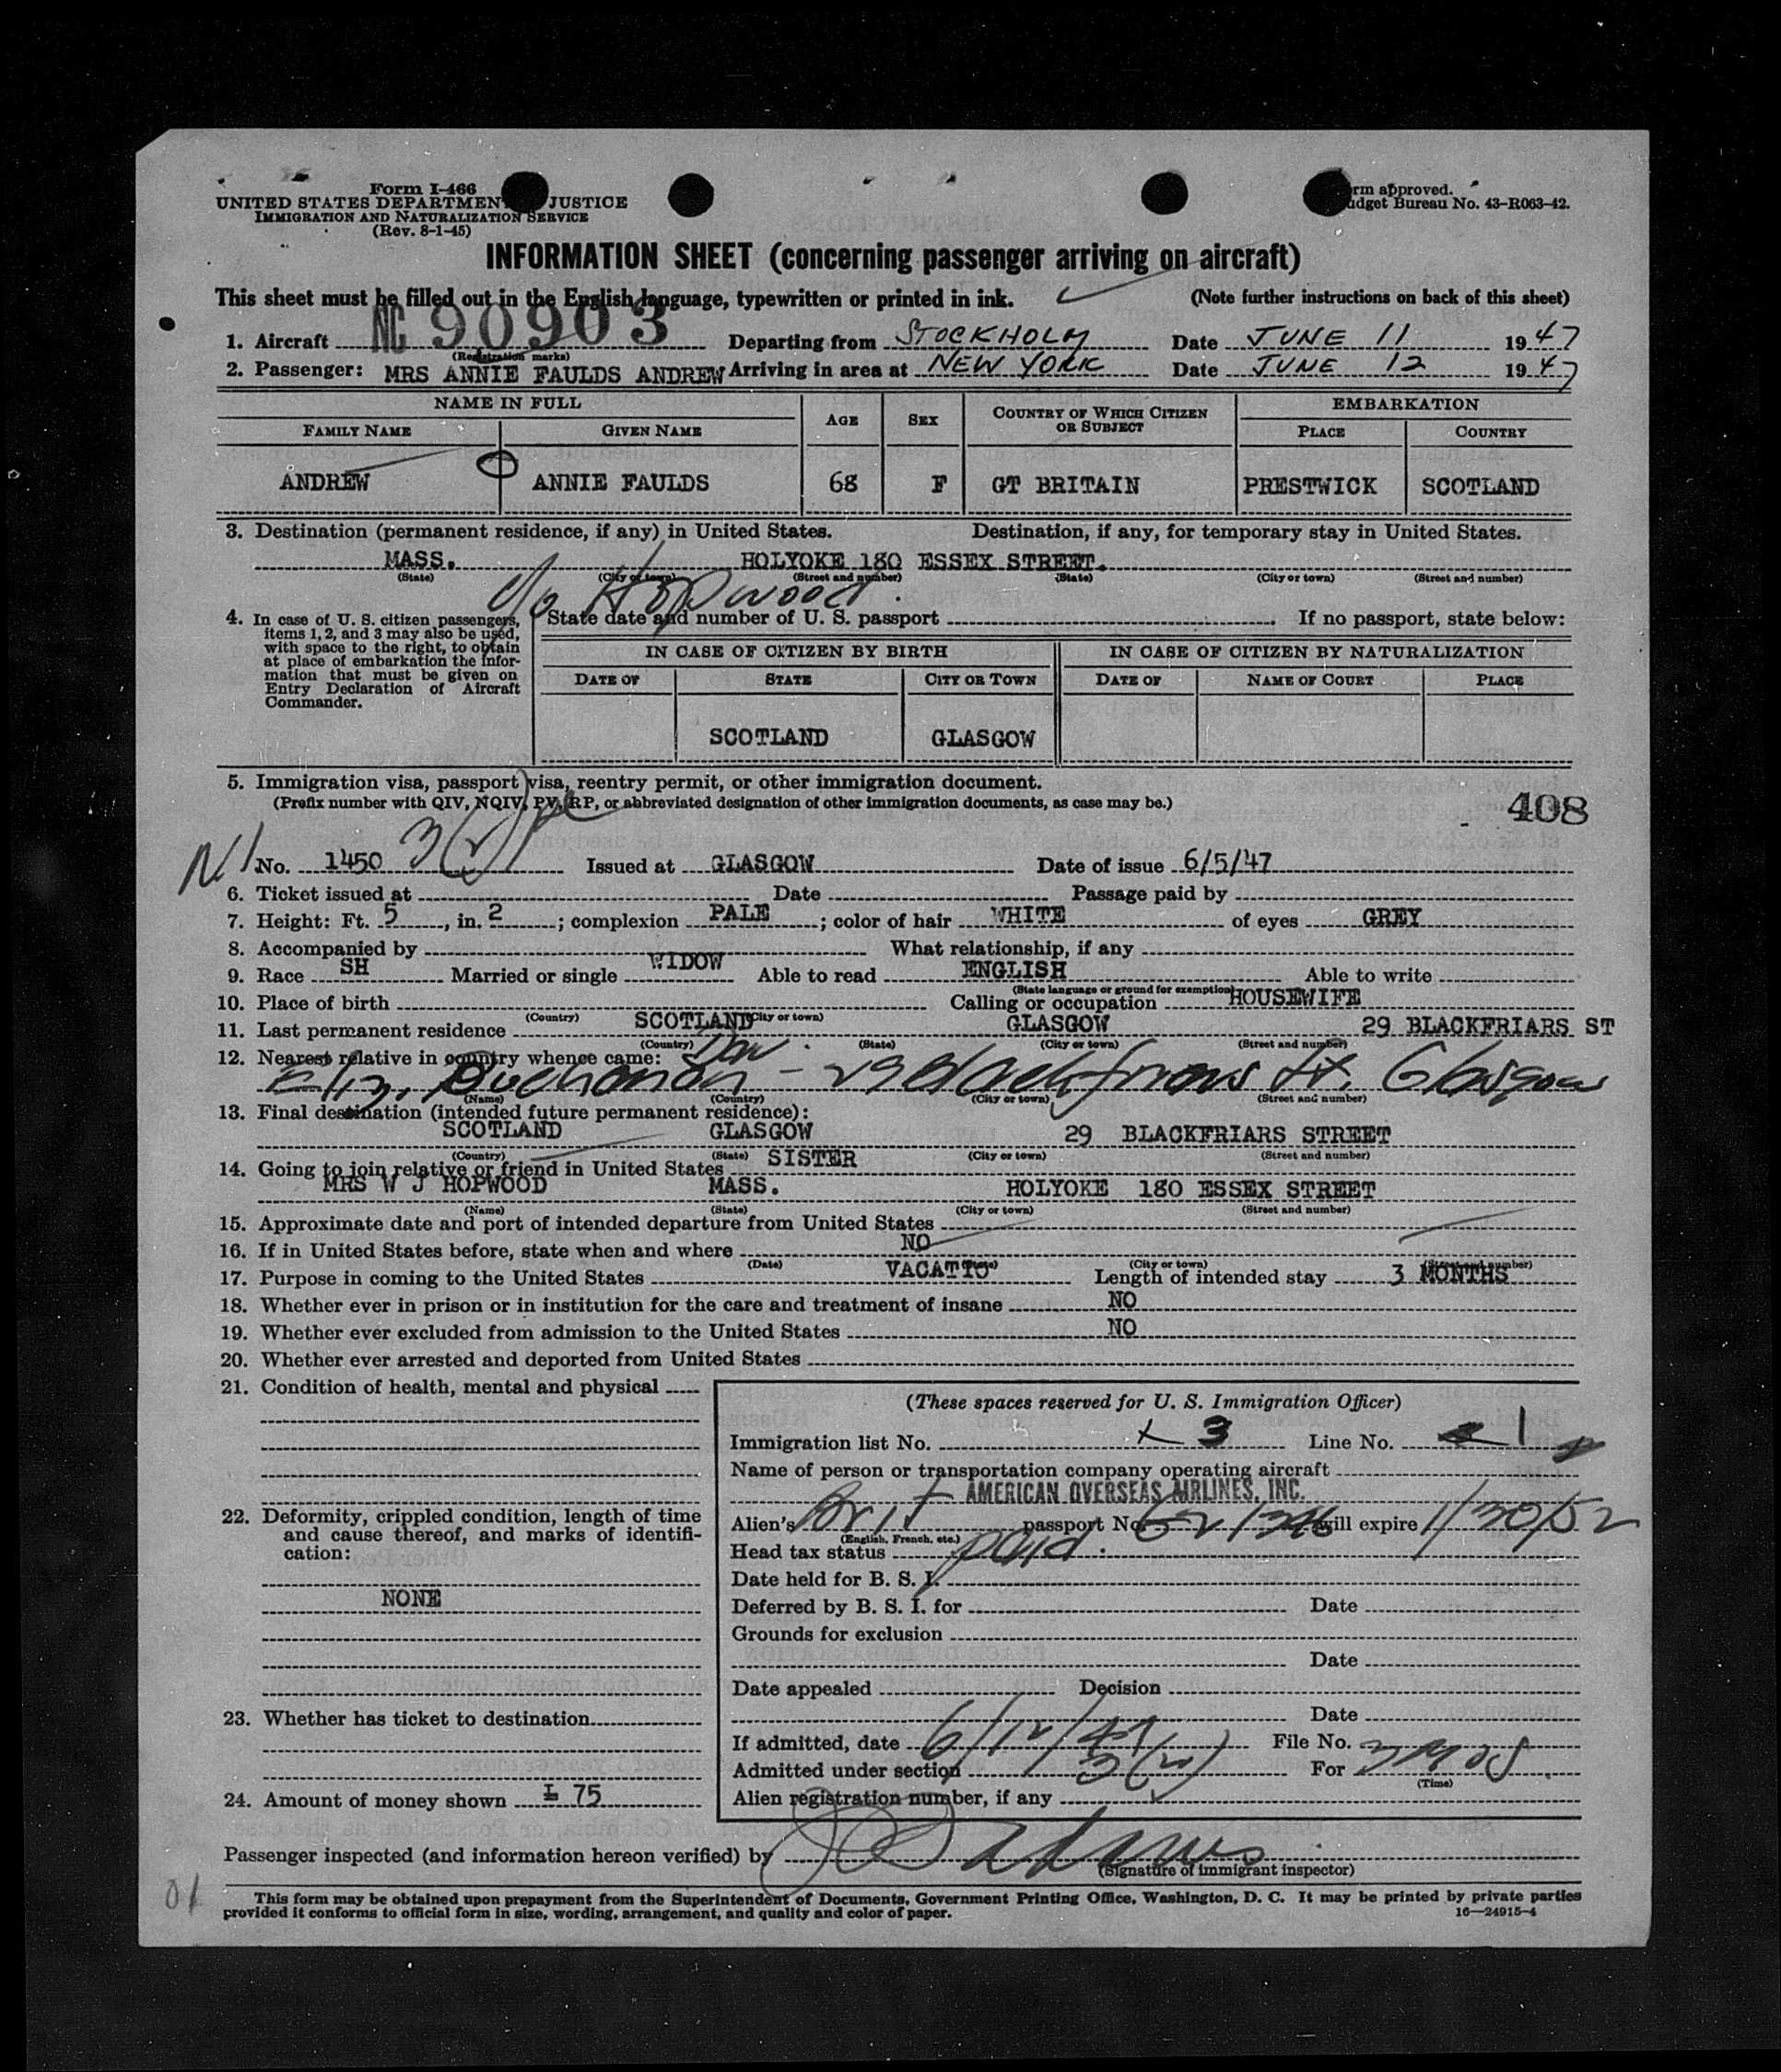 Form I-466
UNITED STATES DEPARTMENT JUSTICE
IMMIGRATION AND NATURALIZATION SERVICE
(Rev. 8-1-45)
rm approved.
udget Bureau No. 43-R063-42.
INFORMATION SHEET (concerning passenger arriving on aircraft)
This sheet must be filled out in the English language, typewritten or printed in ink. (Note further instructions on back of this sheet)
1. Aircraft NC 90903 Departing from STOCKHOLM Date JUNE 11 1947
(Registration marks)
2. Passenger: MRS ANNIE FAULDS ANDREW Arriving in area at NEW YORK Date JUNE 12 1947
NAME IN FULL AGE SEX COUNTRY OF WHICH CITIZEN OR SUBJECT EMBARKATION
FAMILY NAME GIVEN NAME PLACE COUNTRY
ANDREW ANNIE FAULDS 68 F GT BRITAIN PRESTWICK SCOTLAND
3. Destination (permanent residence, if any) in United States. Destination, if any, for temporary stay in United States.
MASS. HOLYOKE 180 ESSEX STREET.
(State) (City or town) (Street and number) (State) (City or town) (Street and number)
c/o Hopwood.
4. In case of U. S. citizen passengers, items 1, 2, and 3 may also be used, with space to the right, to obtain at place of embarkation the information that must be given on Entry Declaration of Aircraft Commander.
State date and number of U. S. passport If no passport, state below:
IN CASE OF CITIZEN BY BIRTH IN CASE OF CITIZEN BY NATURALIZATION
DATE OF STATE CITY OR TOWN DATE OF NAME OF COURT PLACE
SCOTLAND GLASGOW
5. Immigration visa, passport visa, reentry permit, or other immigration document.
(Prefix number with QIV, NQIV, PV, RP, or abbreviated designation of other immigration documents, as case may be.)
408
No. 1450 3(2) Issued at GLASGOW Date of issue 6/5/47
6. Ticket issued at Date Passage paid by
7. Height: Ft. 5, in. 2; complexion PALE; color of hair WHITE of eyes GREY
8. Accompanied by What relationship, if any
9. Race SH Married or single WIDOW Able to read ENGLISH Able to write
(State language or ground for exemption)
10. Place of birth Calling or occupation HOUSEWIFE
(Country) (City or town)
11. Last permanent residence SCOTLAND GLASGOW 29 BLACKFRIARS ST
(Country) (State) (City or town) (Street and number)
12. Nearest relative in country whence came:
Eliz. Buchanan - 29 Blackfriars St. Glasgow
(Name) (Country) (City or town) (Street and number)
13. Final destination (intended future permanent residence):
SCOTLAND GLASGOW 29 BLACKFRIARS STREET
(Country) (State) (City or town) (Street and number)
14. Going to join relative or friend in United States SISTER
MRS W J HOPWOOD MASS. HOLYOKE 180 ESSEX STREET
(Name) (State) (City or town) (Street and number)
15. Approximate date and port of intended departure from United States
16. If in United States before, state when and where NO
(Date) (State) (City or town) (Street and number)
17. Purpose in coming to the United States VACATIO Length of intended stay 3 MONTHS
18. Whether ever in prison or in institution for the care and treatment of insane NO
19. Whether ever excluded from admission to the United States NO
20. Whether ever arrested and deported from United States
21. Condition of health, mental and physical
22. Deformity, crippled condition, length of time and cause thereof, and marks of identification:
NONE
23. Whether has ticket to destination
24. Amount of money shown £ 75
(These spaces reserved for U. S. Immigration Officer)
Immigration list No. 3 Line No. 1
Name of person or transportation company operating aircraft
AMERICAN OVERSEAS AIRLINES, INC.
Alien's Brit passport No. will expire 1/30/52
(English, French, etc.)
Head tax status paid.
Date held for B. S. I.
Deferred by B. S. I. for Date
Grounds for exclusion
Date
Date appealed Decision
Date
If admitted, date 6/12/47 File No.
Admitted under section 3(2) For 3 mos.
(Time)
Alien registration number, if any
Passenger inspected (and information hereon verified) by
(Signature of immigrant inspector)
01
This form may be obtained upon prepayment from the Superintendent of Documents, Government Printing Office, Washington, D. C. It may be printed by private parties
provided it conforms to official form in size, wording, arrangement, and quality and color of paper. 16—24915-4